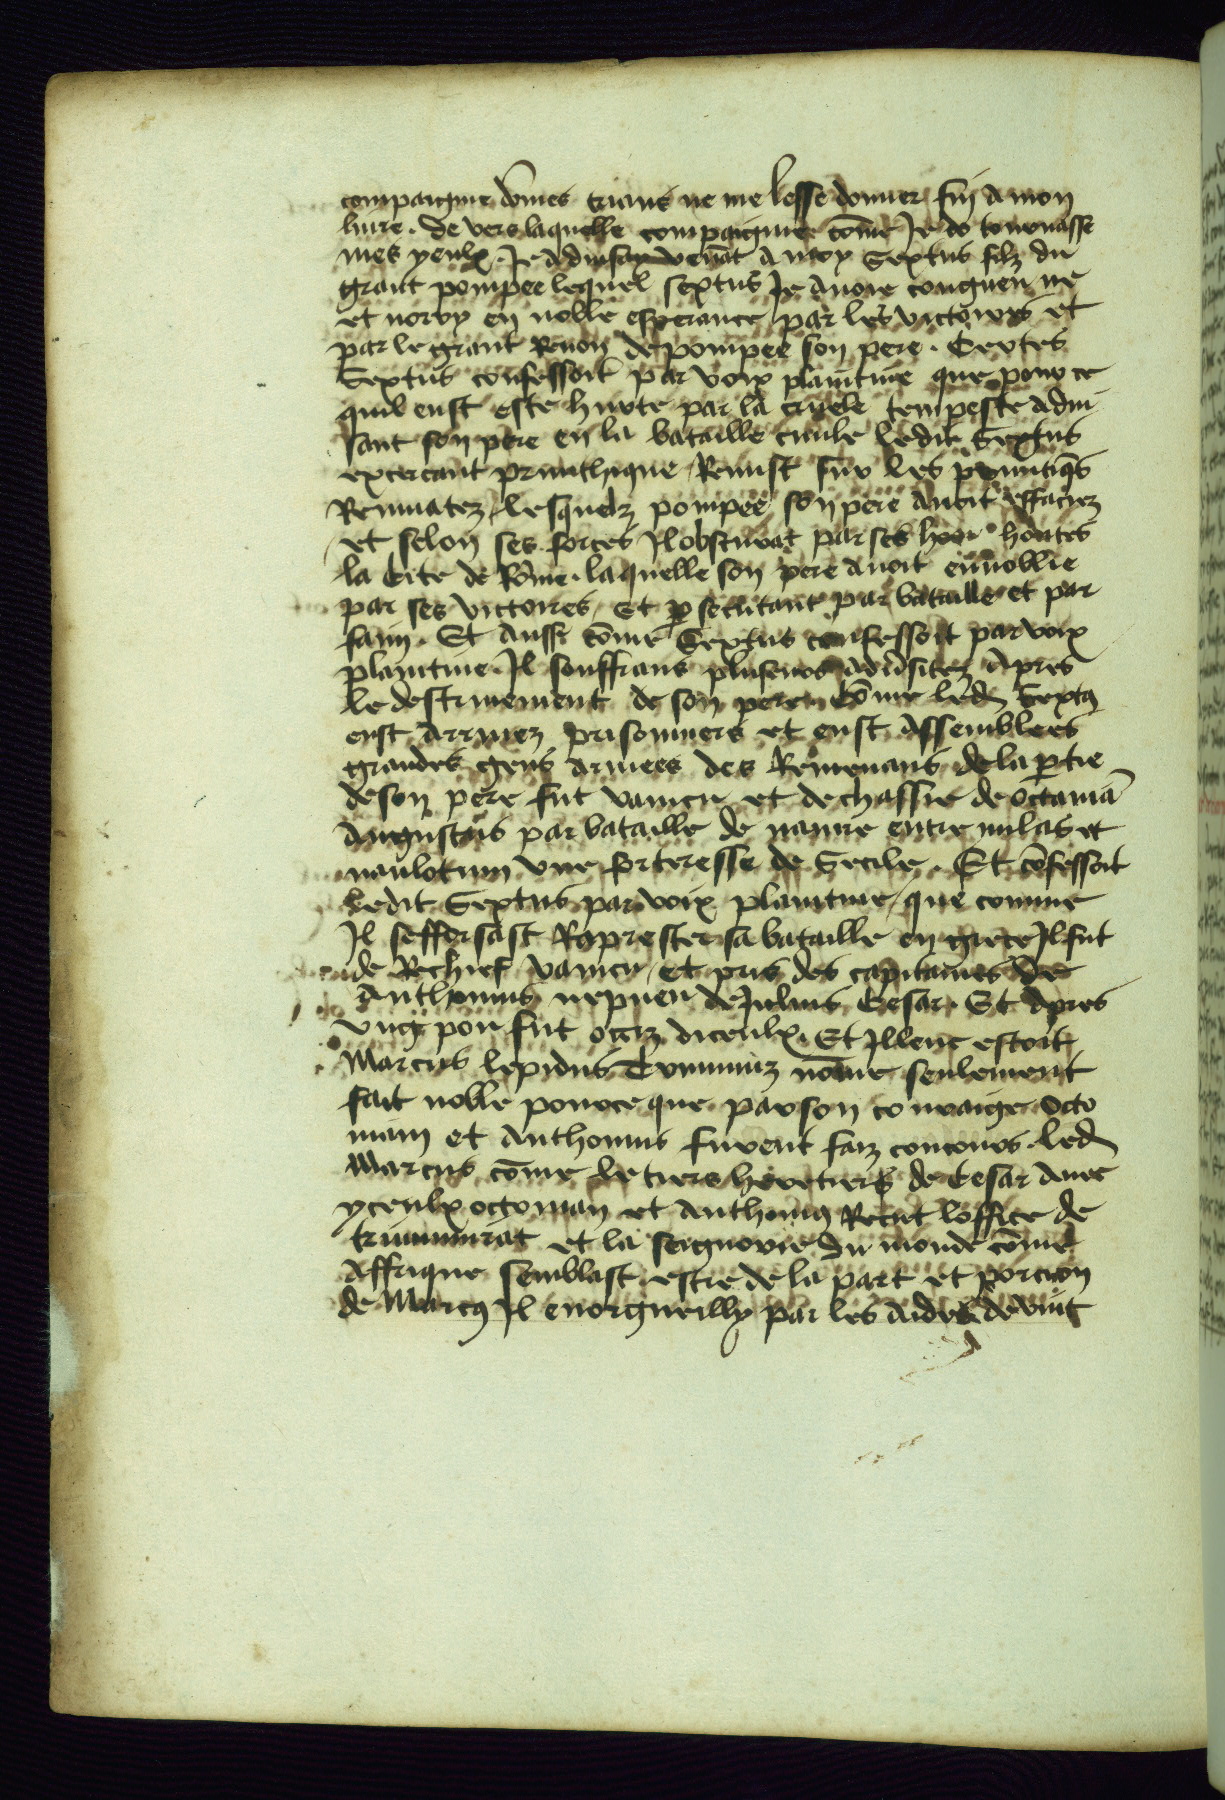 compaignie dômes crians ne me lesse donner fin a mon
livre . de vers laquelle compaignie côme Je do tornasse
mes yeulx . Je advisay venât a moy Sextus filz du
grant pompee lequel sextus Je avoie congneu ne
et norry en noble esperance par les victoires et
par le grant Renon de pompee son pere . Certes
Sextus confessoit par voix plaintive que pour ce
quil eust este hurte par la cruele tempeste advi
sant son pere en la bataille civile ledit Sextus
excercant Remist sur les
lesquelz pompee son pere avoit effaciez
et selon ses forces Il obscurat par ses hontes
la Cite de Rôme . laquelle son pere avoit ennoblie
par ses victoires / et persecutant par bataille et par
faim . Et aussi côme Sextus confessoit par voix
plaintive . Il souffrans pluseurs adversitez apres
le destruiement de son pere Côme led Sextus
eust armez prisonniers et eust assemblees
grandes gens armees des Remenans de la ptie
de son pere fut vaincu et dechassie de Octaviâ
Augustus par bataille de navire entre milas et
naulotum une forteresse de Secile . Et côfessoit
ledit Sextus par voix plaintive / que comme
Il seffersast Raprester sa bataille en grece Il fut
de Rechief vaincu / et pris des capitaines de
Anthonius nepueu de Julius Cesar . Et apres
ung pou fut occiz diceulx . Et Illenc estoit
Marcus lepidus nôme seulement
fait noble pour ce que par son couraige Octo
vian et Anthonius furent faiz contours led
Marcus côme le tiers heretiers de Cesar avec
yceulx octovian et Anthonius Recut loffice de
triumvirat et la seignorie du monde côme
Affrique semblast estre de la part et porcion
de Marcus Il enorgueilly par les aides devint